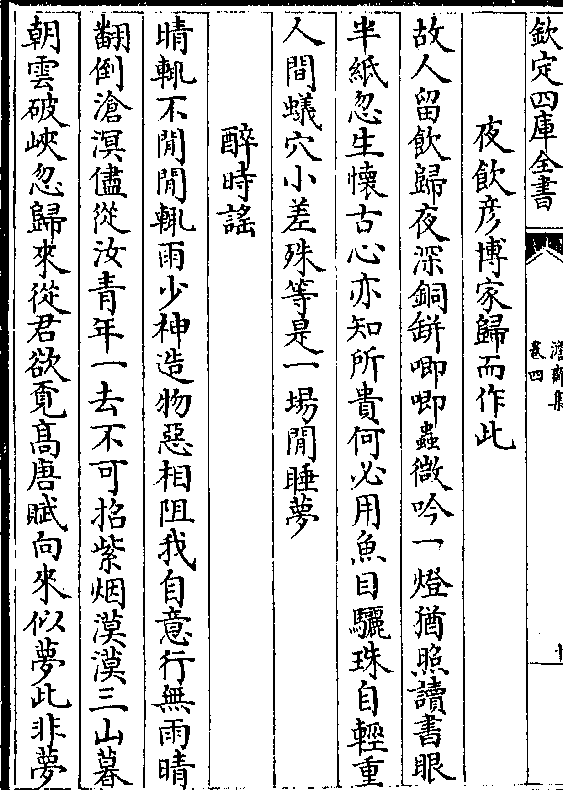 欽定四庫全書
卷四
夜飲彦博家歸而作此
故人留飲歸夜深銅鉼唧唧蟲微吟一燈猶照讀書眼
半紙忽生懷古心亦知所貴何必用魚目驪珠自輕重
人間蟻穴小差殊等是一場閒睡夢
醉時謡
晴輒不閒閒輒雨少神造物惡相阻我自意行無雨晴
翻倒滄溟儘從汝青年一去不可招紫烟漠漠三山暮
朝雲破峽忽歸來從君欲覓髙唐賦向來似夢此非夢